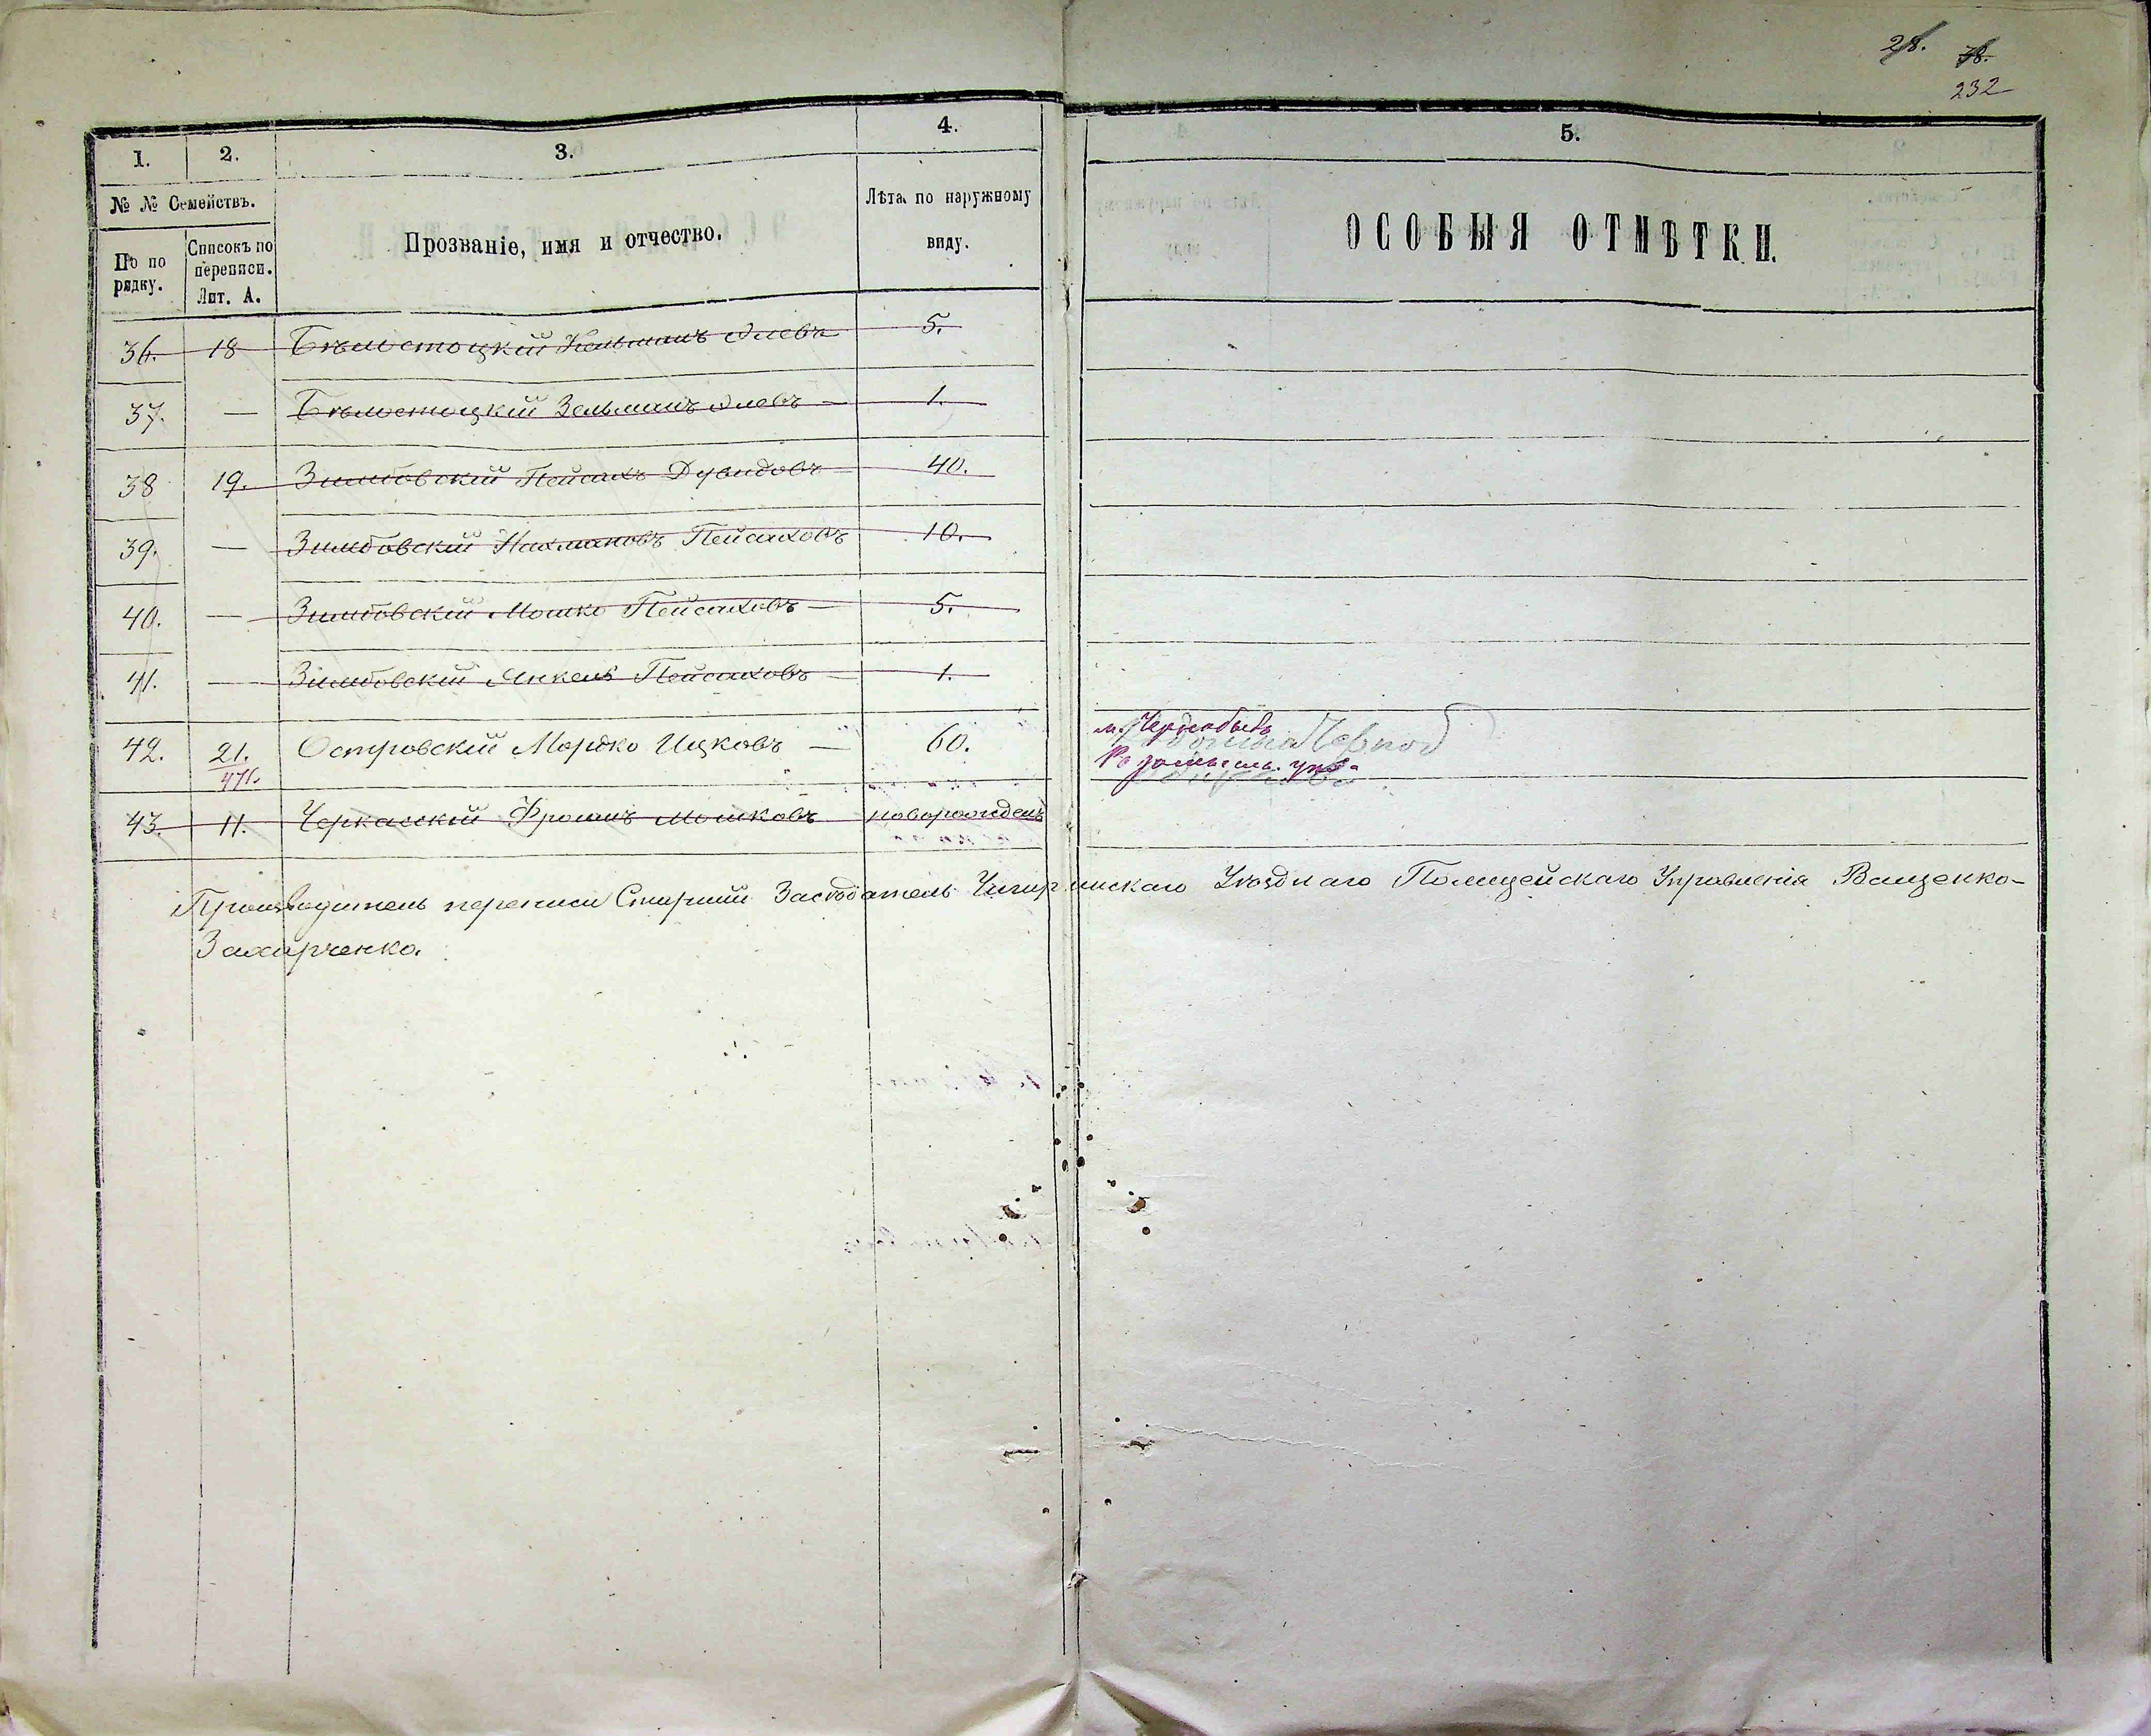 28. 38.
232
1. 2. 3. 4. 5.
№ № Семействъ.
По порядку.
Списокъ по переписи. Лит. А.
Прозваніе, имя и отчество.
Лѣта по наружному виду.
ОСОБЫЯ ОТМѢТКИ.
36. 18 Бѣлостоцкій Кельманъ Элевъ 5.
37. — Бѣлостоцкій Зельманъ Элевъ — 1.
38 19. Зимбовскій Пейсахъ Дувидовъ 40.
39. — Зимбовскій Нахмановъ Пейсаховъ 10.
40. — Зимбовскій Мошко Пейсаховъ — 5.
41. — Зимбовскій Янкель Пейсаховъ — 1.
42. 21. Островскій Мордко Ицковъ — 60. м. Чернобыль
471. Радомысль. уѣз.
43. 11. Черкасскій Фроимъ Мошковъ новорожденъ
Производитель переписи Старшій Засѣдатель Чигиринскаго Уѣзднаго Полицейскаго Управленія Ващенко-
Захарченко.